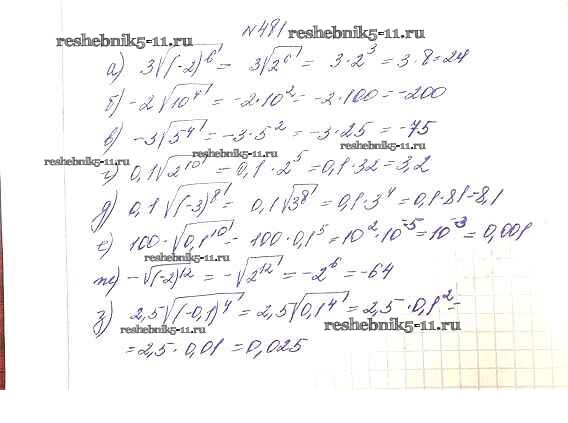 №481
reshebnik5-11.ru reshebnik5-11.ru
а) 3√(-2)⁶ = 3√2⁶ = 3·2³ = 3·8=24
б) -2√10⁴ = -2·10² = -2·100 = -200
в) -3√5⁴ = -3·5² = -3·25 = -75
reshebnik5-11.ru reshebnik5-11.ru reshebnik5-11.ru
г) 0,1√2¹⁰ = 0,1·2⁵ = 0,1·32 = 3,2
д) 0,1√(-3)⁸ = 0,1√3⁸ = 0,1·3⁴ = 0,1·81=8,1
е) 100·√0,1¹⁰ = 100·0,1⁵ = 10²·10⁻⁵ = 10⁻³ = 0,001
reshebnik5-11.ru
ж) -√(-2)¹² = -√2¹² = -2⁶ = -64
з) 2,5√(-0,1)⁴ = 2,5√0,1⁴ = 2,5·0,1² =
reshebnik5-11.ru reshebnik5-11.ru
= 2,5·0,01 = 0,025